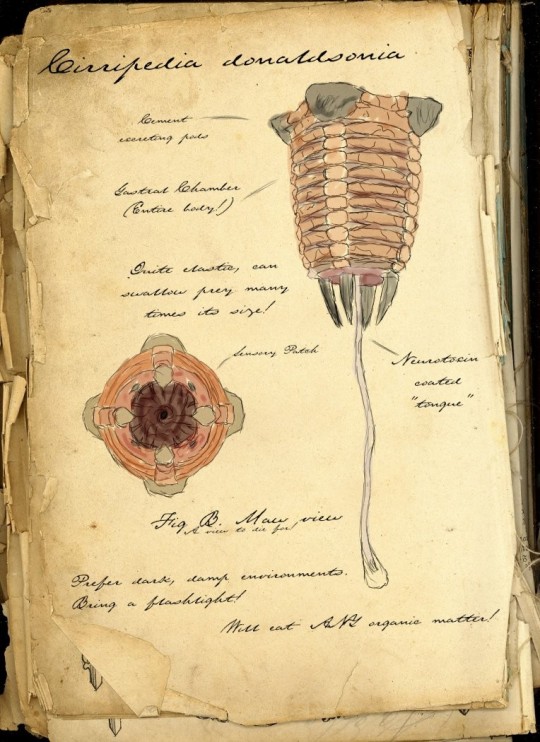 Cirripedia donaldsonia
Cement
secreting pods
Gastral Chamber
(Entire body!)
Quite elastic, can
swallow prey many
times its size!
Sensory Patch
Neurotoxin
coated
"tongue"
Fig B. Maw view
A view to die for
Prefer dark, damp environments.
Bring a flashlight!
Will eat ANY organic matter!